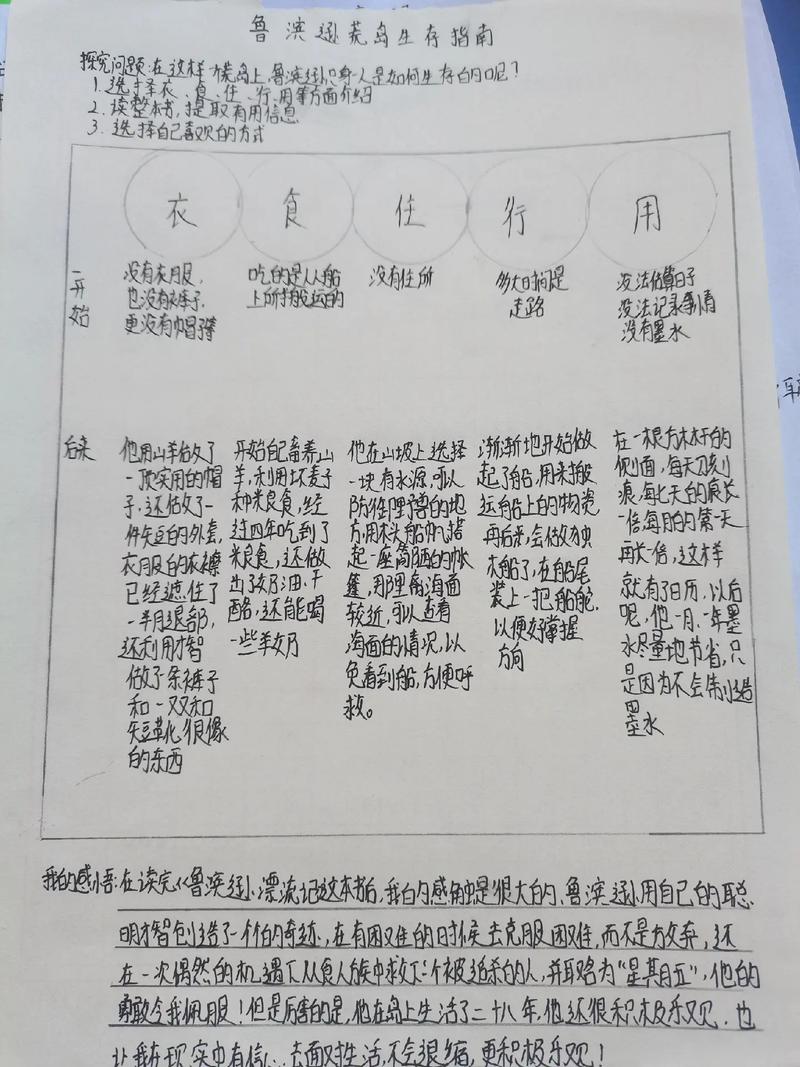 鲁滨逊荒岛生存指南
探究问题:在这样一个荒岛上,鲁滨逊只身一人是如何生存的呢?
1. 选择衣、食、住、行、用等方面介绍
2. 读整本书,提取有用信息
3. 选择自己喜欢的方式
衣
食
住
行
用
开始
没有衣服,
也没有裤子,
更没有帽子等
吃的是从船
上所搬运的
没有住所
多大时间是
走路
没法估算日子
没法记录事情
没有墨水
后来
他用山羊做了
一顶实用的帽
子,还做了一
件失豆的外套,
衣服的衣襟
已经遮住了
一半月退部,
还利用才智
做了条裤子
和一双和
失豆靴化很像
的东西
开始自己畜养山
羊,利用坏麦子
种米良食,经
过四年吃到了
米良食,还做
出了奶油、干
酪,还能喝
一些羊奶
他在山坡上选择
一块有水源,可以
防御野兽的地
方,用木头船帆搭
起一座简陋的帐
篷,用距离海面
较近,可以查看
海面的情况,以
免看到船,方便呼
救。
渐渐地开始做
起了船,用来搬
运船上的物资
再后来,会做独
木船了,在船尾
装上一把船舵,
以便好掌握
方向
在一根方木杆的
侧面,每天刀刻
痕,每七天的痕长
一倍每月的第一天
再长一倍,这样
就有了日历,以后
呢,他一月、一年墨
水尽量地节省,只
是因为不会制造
墨水
我的感悟:在读完《鲁滨逊漂流记》这本书后,我的感触是很大的、鲁滨逊用自己的聪
明才智创造了一个个的奇迹,在有困难的时候去克服困难,而不是放弃,还
在一次偶然的机遇下从食人族中救下一个被追杀的人,并取名为“星期五”,他的
勇敢令我佩服!但是厉害的是,他在岛上生活了二十八年,他还很积极乐观,也
让我在现实中有信心去面对生活,不会退缩,更积极乐观!